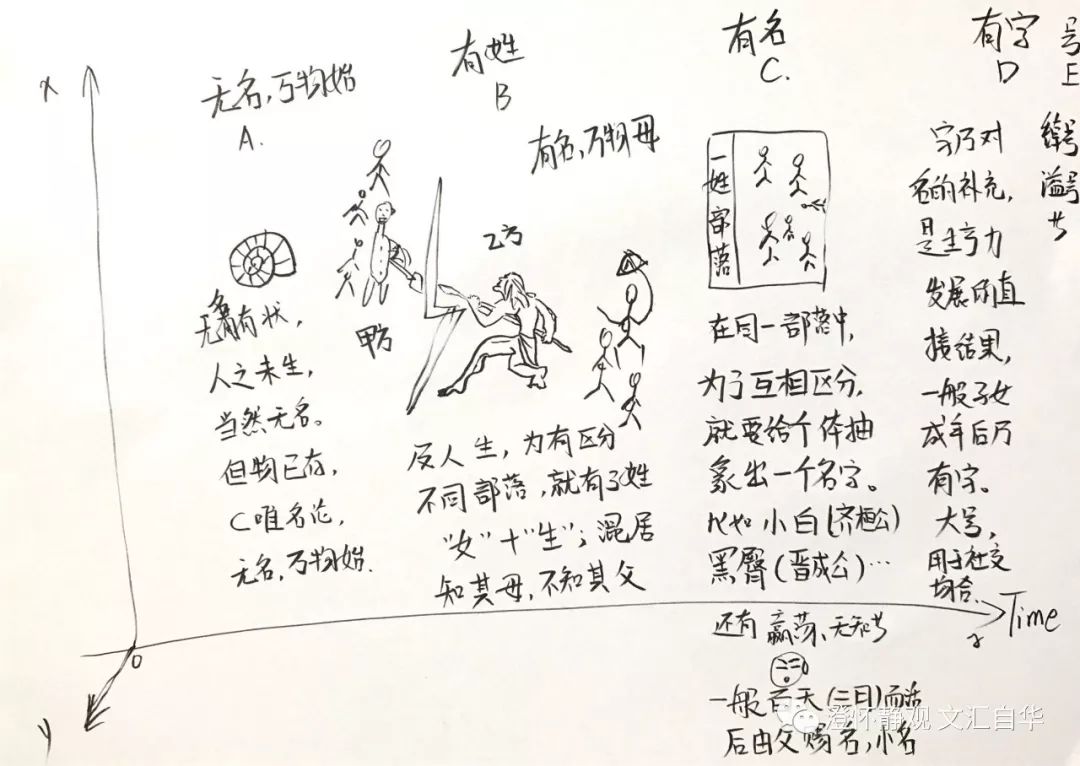 x
无名,万物始
A.
无名有状,
人之未生,
当然无名。
但物已存,
C唯名论,
无名,万物始.
有姓
B
有名,万物母
甲方
乙方
反人生,为有区分
不同部落,就有了姓
“女”十“生”;混居
知其母,不知其父
有名
C.
一姓部落
在同一部落中,
为了互相区分,
就要给个体抽
象出一个名字。
比如小白(齐桓公)
黑臀(晋成公)…
还有
一般百天(三日)而活
后由父赐名,小名
有字
D
字乃对
名的补充,
是生产力
发展的直
接结果,
一般子女
成年后乃
有字。
大号,
用于社交
均合.
号
E
谥号
Time
o
y
澄怀静观 文汇自华